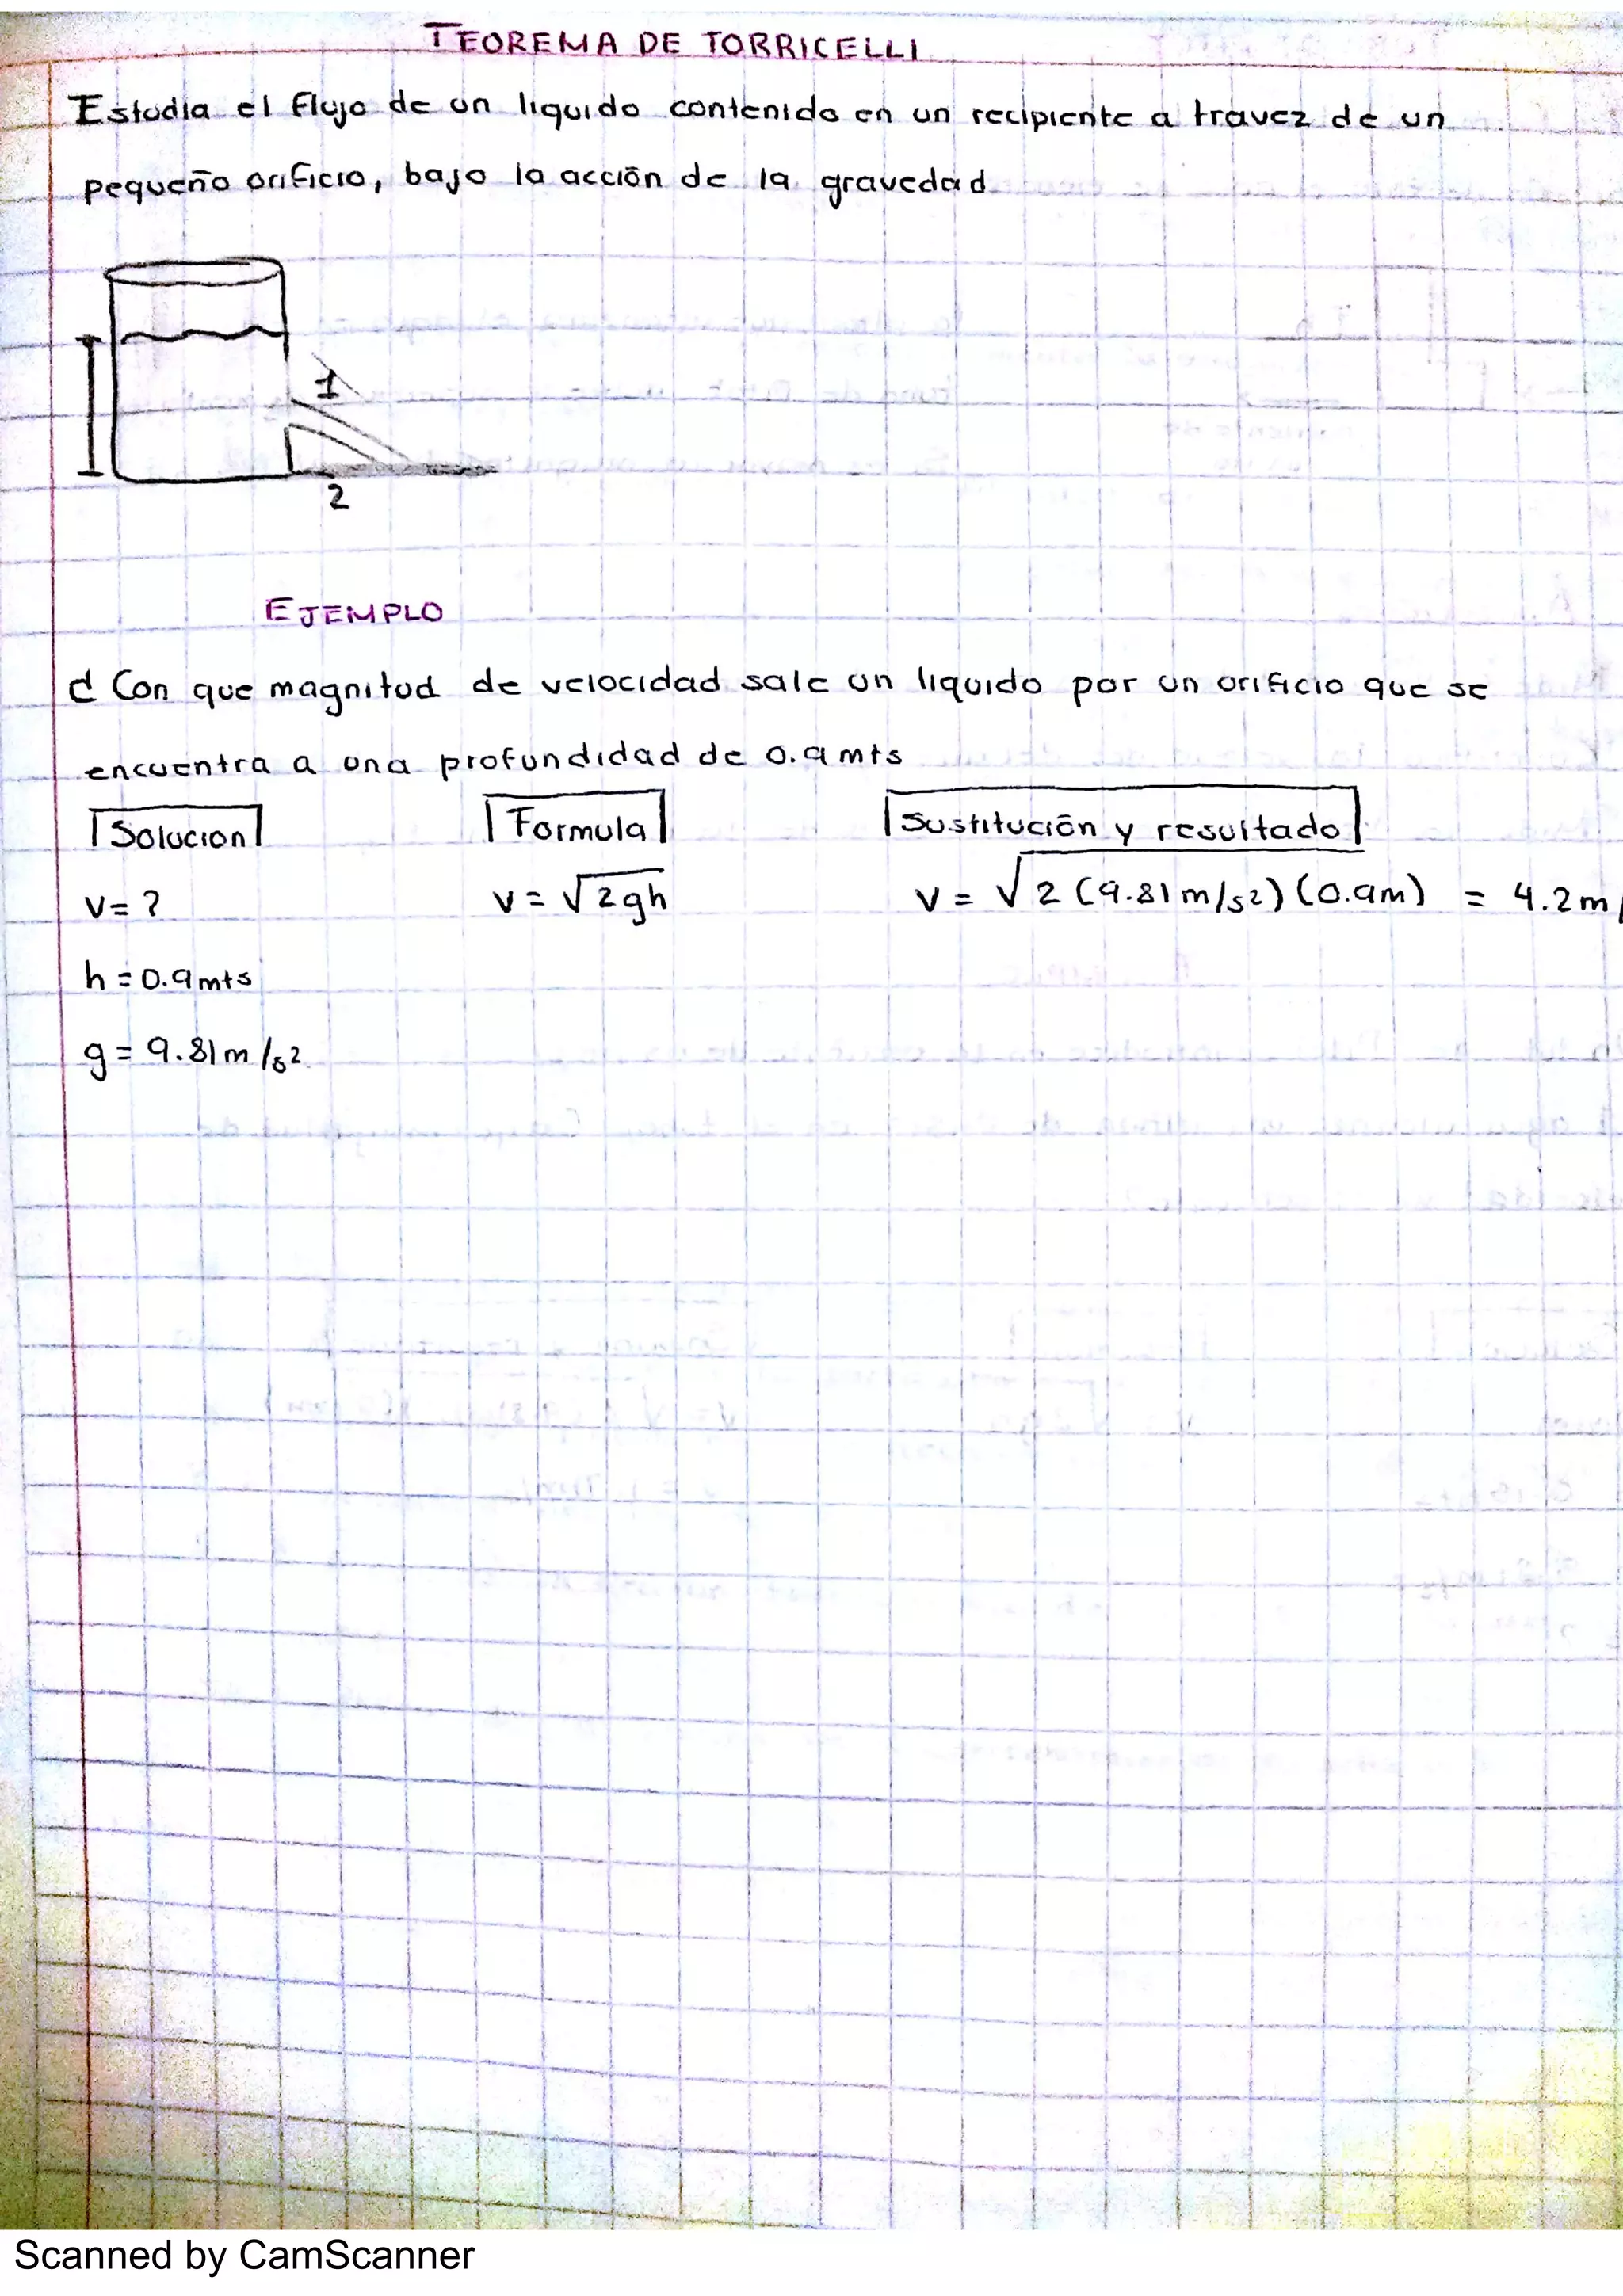 TEOREMA DE TORRICELLI
Estudia el flujo de un liquido contenido en un recipiente a travez de un
pequeño orificio, bajo la acción de la gravedad
1
2
EJEMPLO
d Con que magnitud de velocidad sale un liquido por un orificio que se
encuentra a una profundidad de 0.9 mts
Solucion Formula Sustitución y resultado
v= ? v = √2gh v = √2 (9.81 m/s2) (0.9m) = 4.2 m/
h = 0.9 mts
g = 9.81 m/s2
Scanned by CamScanner